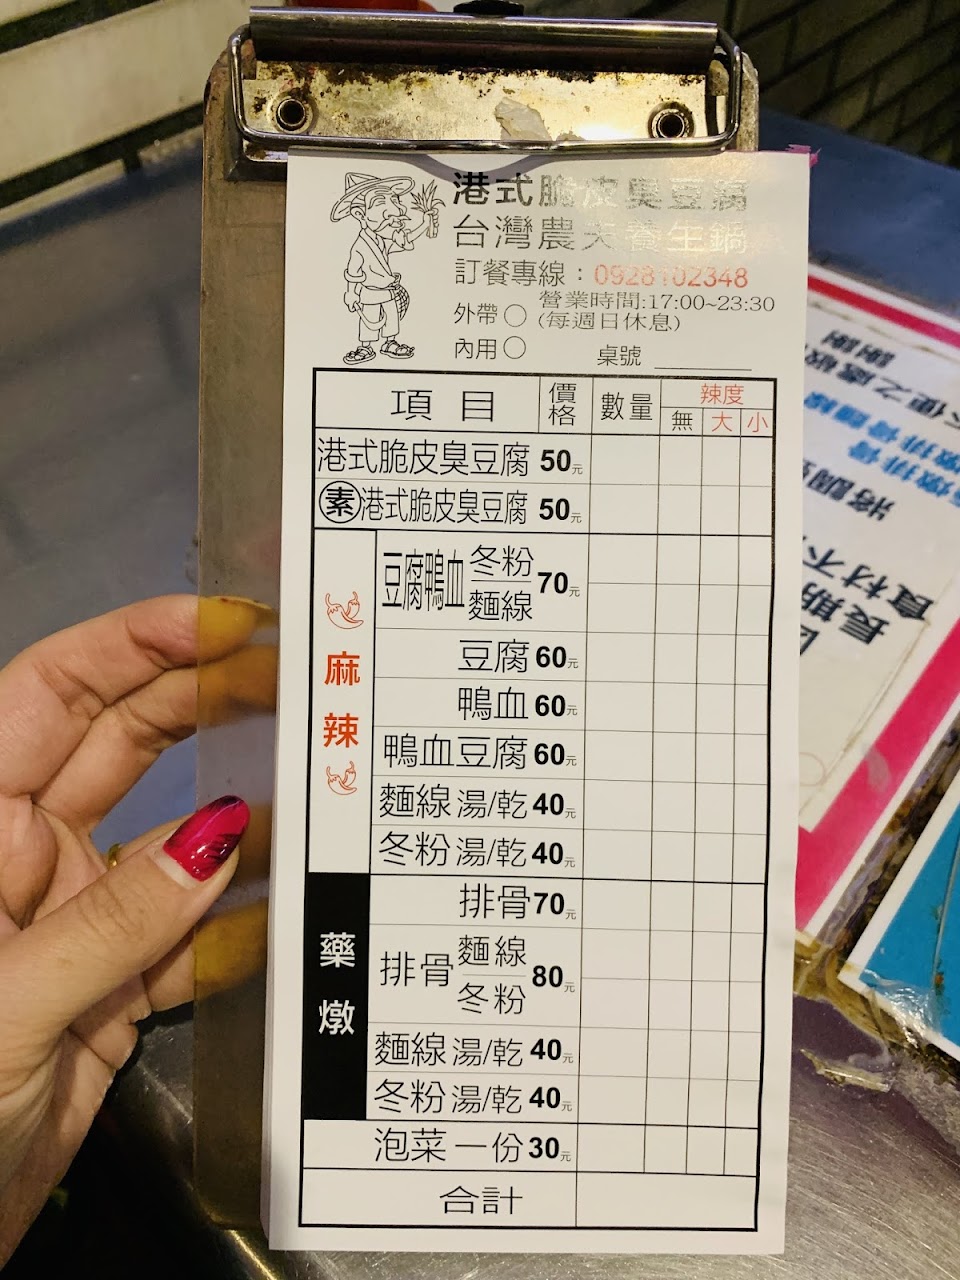 港式脆皮臭豆腐
台灣農夫養生鍋
訂餐專線：0928102348
外帶○ 營業時間:17:00~23:30
(每週日休息)
內用○ 桌號
項目 價格 數量 辣度
無 大 小
港式脆皮臭豆腐 50元
素 港式脆皮臭豆腐 50元
麻辣
豆腐鴨血 冬粉 麵線 70元
豆腐 60元
鴨血 60元
鴨血豆腐 60元
麵線 湯/乾 40元
冬粉 湯/乾 40元
藥燉
排骨 70元
排骨 麵線 冬粉 80元
麵線 湯/乾 40元
冬粉 湯/乾 40元
泡菜一份 30元
合計
長期
食材不
不便之處敬
謝謝